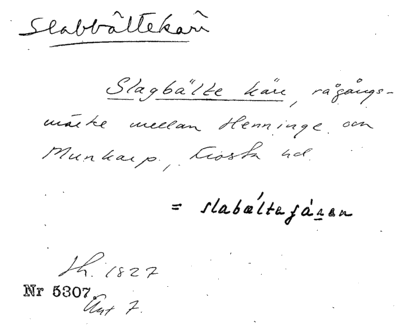 Slabbältekärr
Slagbälte kärr, rågångs-
märke mellan Henninge och
Munkarp, Frosta hd.
= slabæltesjáren
Sk. 1827
Nr 5307.
Akt 7.